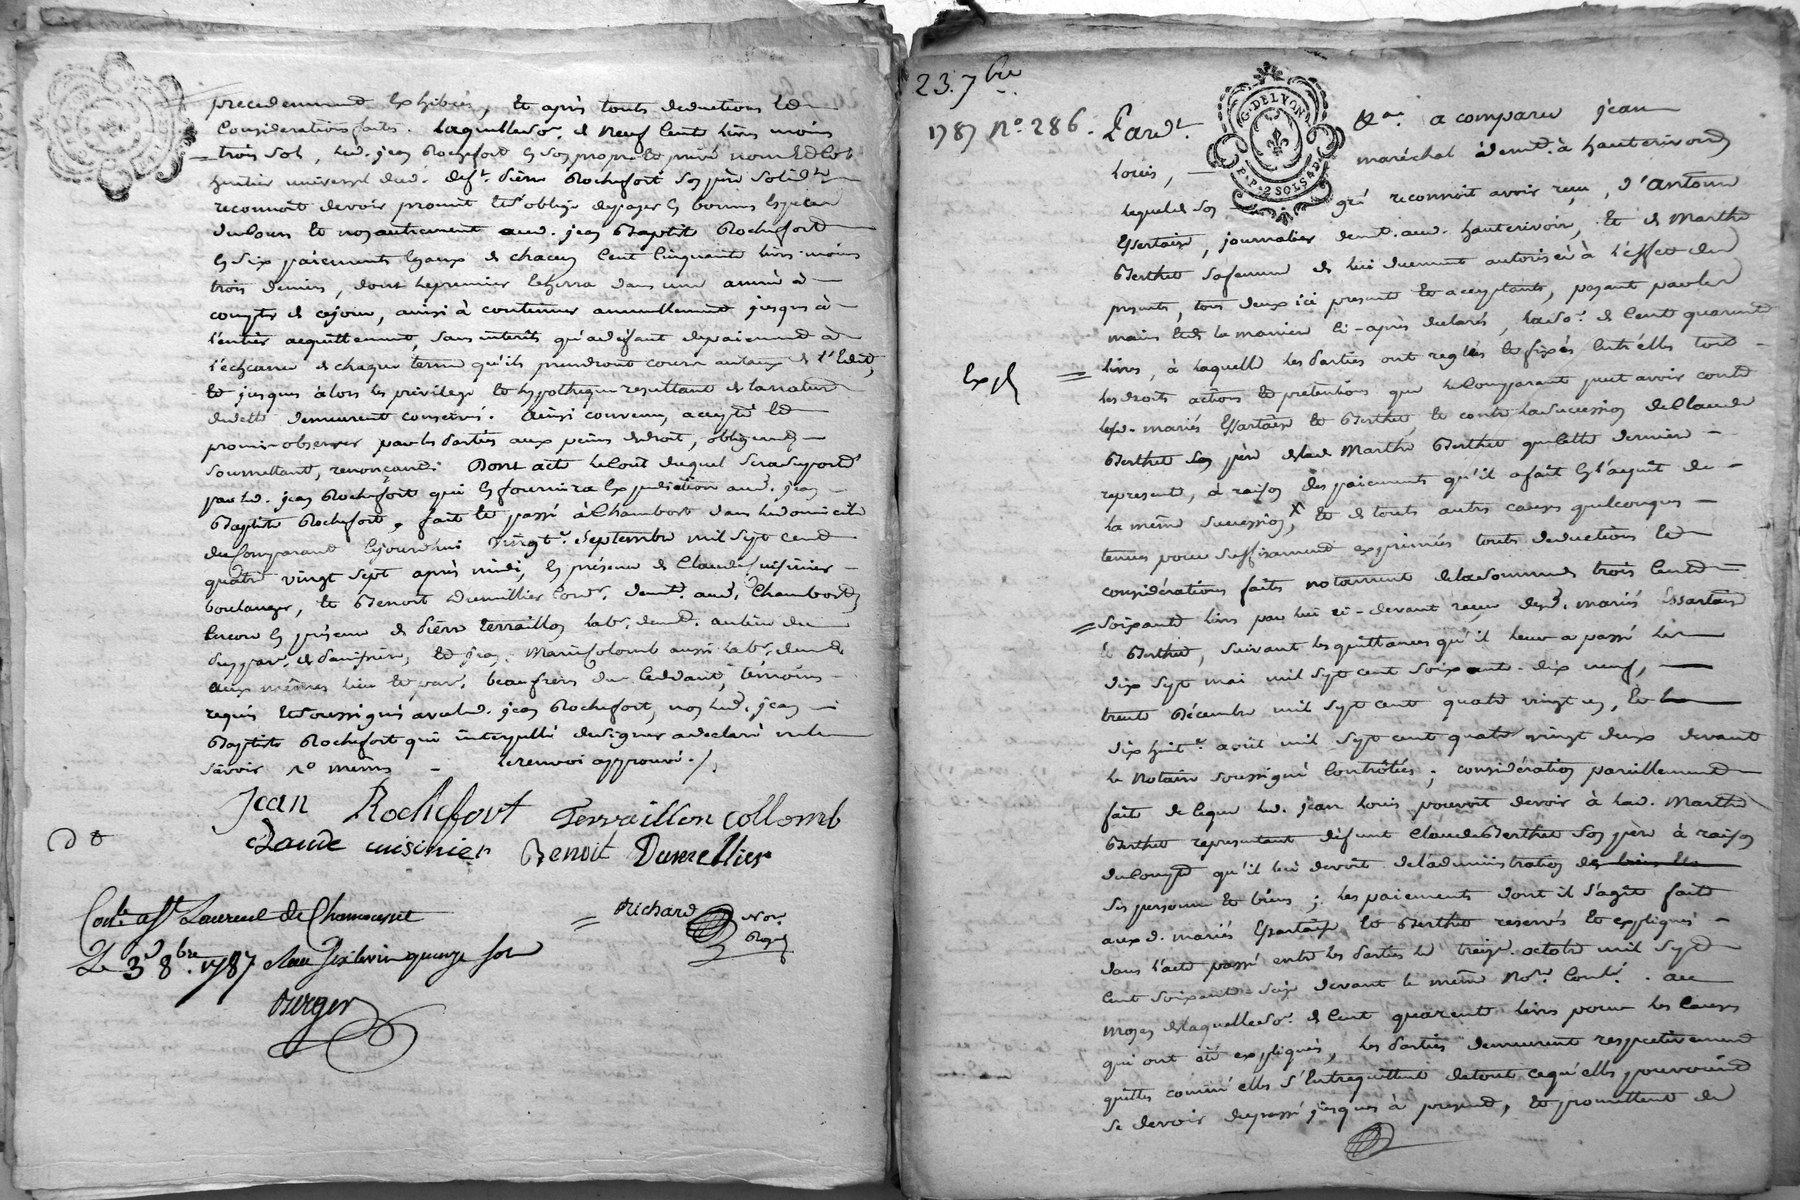 precedemment Exhibées, Et après touts deductions Et
Considerations faits. Laquelle so.e de Neuf Cent livres moins
trois sol, led. jean Rochefort En son propre Et privé nom Et Co
heritier universel dud. deff.t pierre Rochefort son père solid.t
reconnoit devoir promit Et s'oblige de payer En bonnes Especes
du Cours Et non autrement aud. jean Baptiste Rochefort
En Six paiements Egaux de chacun Cent Cinquante livres moins
trois deniers, dont le premier Echerra dans une année à
compter de cejour, ainsi à continuer annuellement jusques à
l'entier acquittement, sans interêts qu'à défaut de paiement à
l'échéance de chaque terme qu'ils prendront cours au taux de l'Edit,
Et jusques à lors les privilege Et hypotheque resultant de la nature
de dette demeurent conservés. Ainsi convenu, accepté Et
promis observer par les parties aux peines de droit, obligeant
Soumettant, renonçant. Dont acte le Cout duquel Sera Suporté
par led. jean Rochefort qui En fournira Expedition aud. jean
Baptiste Rochefort. fait Et passé à Chambost dans le domicile
du Comparant Cejourdhui vingt Septembre mil Sept Cent
quatre vingt Sept après midi, En présence de Claude Cuisinier
boulanger, Et Benoit Dumillier Cord.r demt. aud. Chambost
Encore En présence de Pierre Terraillon lab.r demt. au lieu du
Et jean Marie Colomb aussi lab.r demt
aux mêmes lieu Et par. beaufrère du Cedant, témoins
requis Et Soussignés avec led. jean Rochefort, non led. jean
Baptiste Rochefort qui interpellé de signer a declaré ne le
Savoir le renvoi approuvé./.
Jean Rochefort Terraillon collomb
Claude cuisinier Benoit Dumellier
Richard Nor.
Roy.
Le 3 8bre. 1787
Burger
23. 7bre
1787 N.o 286. Pardt. G. DE LYON P. P. 2 SOLS 4 D. a comparu jean
Louis, maréchal demt. à hauterivoire
lequel de Son gré reconnoit avoir reçu, d'Antoine
Essertaise, journalier demt. aud. hauterivoire, Et de Marthe
Berthet Safemme de lui duement autorisée à l'effet des
presents, tous deux ici presents Et acceptants, payant par les
mains Et de la maniere Ci-après declarés, la so.e de Cent quarante
Exp.
livres, à laquelle les Parties ont reglés Et fixés Entr'elles tout
les droits actions Et pretentions que le Comparant peut avoir contre
lesd. mariés Essartaise Et Berthet, Et contre la Succession de Claude
Berthet Son père de lad. Marthe Berthet qu'Elle dernière
represente, à raison des paiements qu'il a fait En l'acquit de
la même succession, X Et de touts autres causes quelconques
tenues pour Suffisament exprimées touts deductions Et
considérations faits notament de la Somme de trois Cent
Soixante livres par lui ci-devant reçue desd. mariés Essartaise
Et Berthet, Suivant les quittances qu'il leur a passé les
dix Sept mai mil Sept cent Soixante-dix neuf,
trente Décembre mil Sept cent quatre vingt un, Et
dix huit aout mil Sept cent quatre vingt deux devant
le Notaire Soussigné Contrôlées; considération pareillement
faite de Ceque led. jean Louis pouvoit devoir à lad. Marthe
Berthet representant défunt Claude Berthet Son père à raison
du Compte qu'il lui devoit de l'administration de
Ses personne Et biens; les paiements dont il s'agit faits
auxd. mariés Essartaise Et Berthet reservés Et expliqués
dans l'acte passé entre les Parties le treize octobre mil Sept
Cent Soixante-Seize devant le même No.re Contr.é. au
moyen de laquelle so.e de Cent quarante livres pour les Causes
qui ont été expliqués, les Parties demeurent respectivement
quittes comm'elles S'Entrequittent detout cequ'elles pouvoient
Se devoir du passé jusques à present, Et promettent de